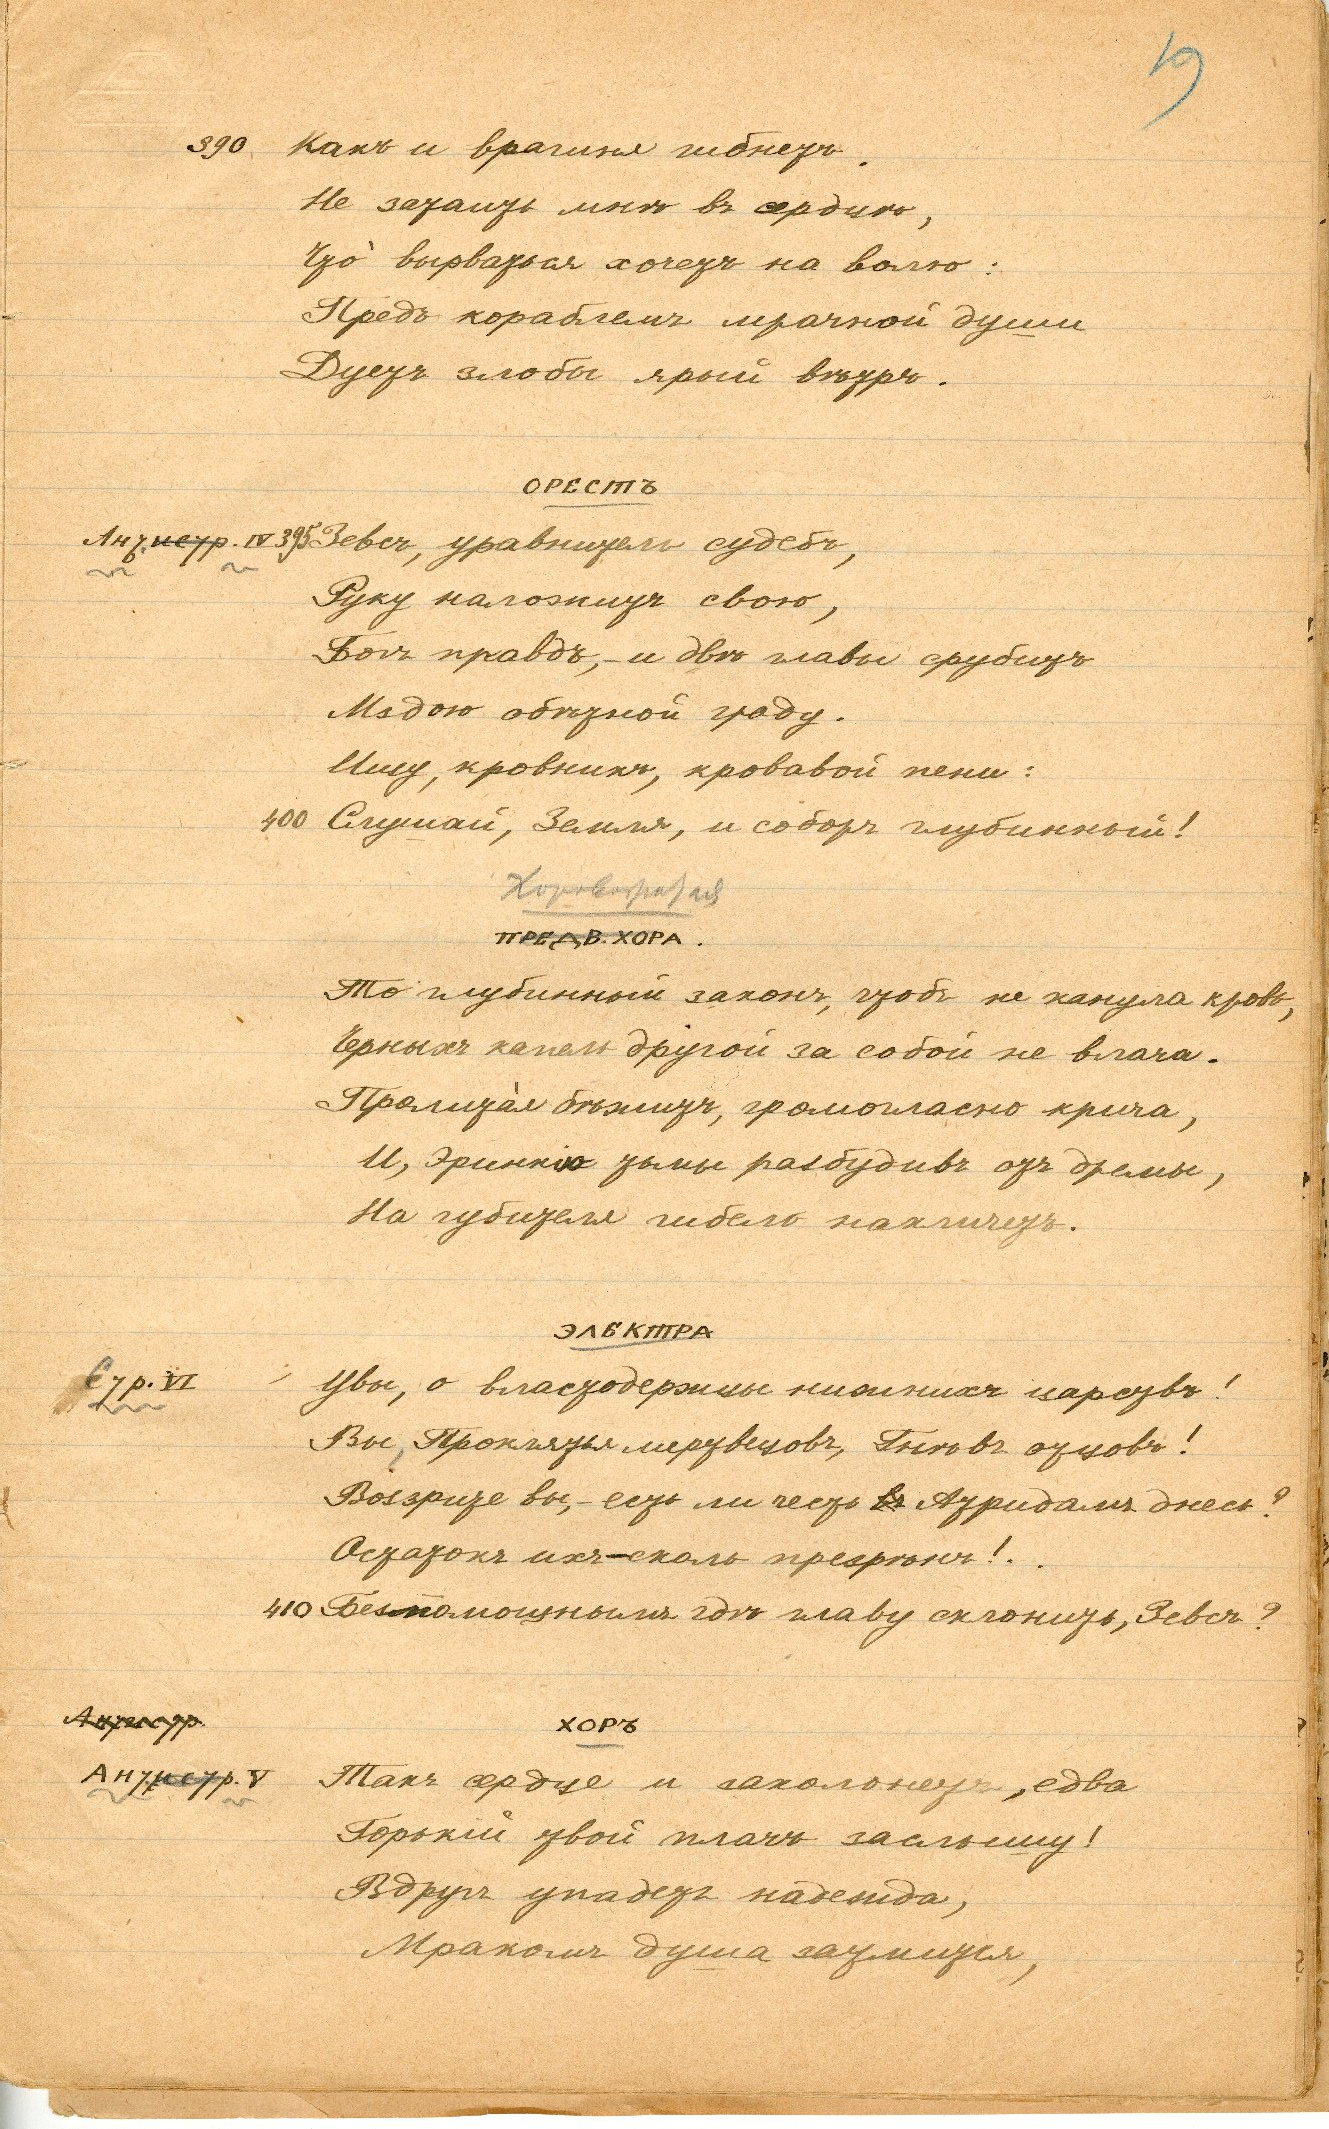 19
390 Какъ и врагиня гибнетъ.
Не затаить мнѣ въ сердцѣ,
Что̀ вырваться хочетъ на волю:
Предъ кораблемъ мрачной души
Дуетъ злобы ярый вѣтръ.
ОРЕСТЪ
Антистр. IV 395 Зевсъ, уравнитель судебъ,
Руку наложитъ свою,
Богъ правдъ,– и двѣ главы срубитъ
Мздою обѣтной граду.
Ищу, кровникъ, кровавой пени:
400 Слушай, Земля, и соборъ глубинный!
Хоровожатая
ПРЕДВ. ХОРА.
То глубинный законъ, чтобъ не канула кровь,
Черныхъ капель другой за собой не влача.
Пролита́я бѣжитъ, громогласно крича,
И, Эринній тьмы разбудивъ отъ дремы,
На губителя гибель накличетъ.
ЭЛЕКТРА
Стр. VI Увы, о властодержцы нижнихъ царствъ!
Вы, Проклятья мертвецовъ, Гнѣвъ отцовъ!
Воззрите вы,– есть ли честь въ Атридамъ днесь?
Остатокъ ихъ–сколь презрѣнъ!..
410 Безпомощнымъ гдѣ главу склонить, Зевсъ?
Антистр.
ХОРЪ
Антистр. V Такъ сердце и захолонетъ, едва
Горькій твой плачъ заслышу!
Вдругъ упадетъ надежда,
Мракомъ душа затмится,